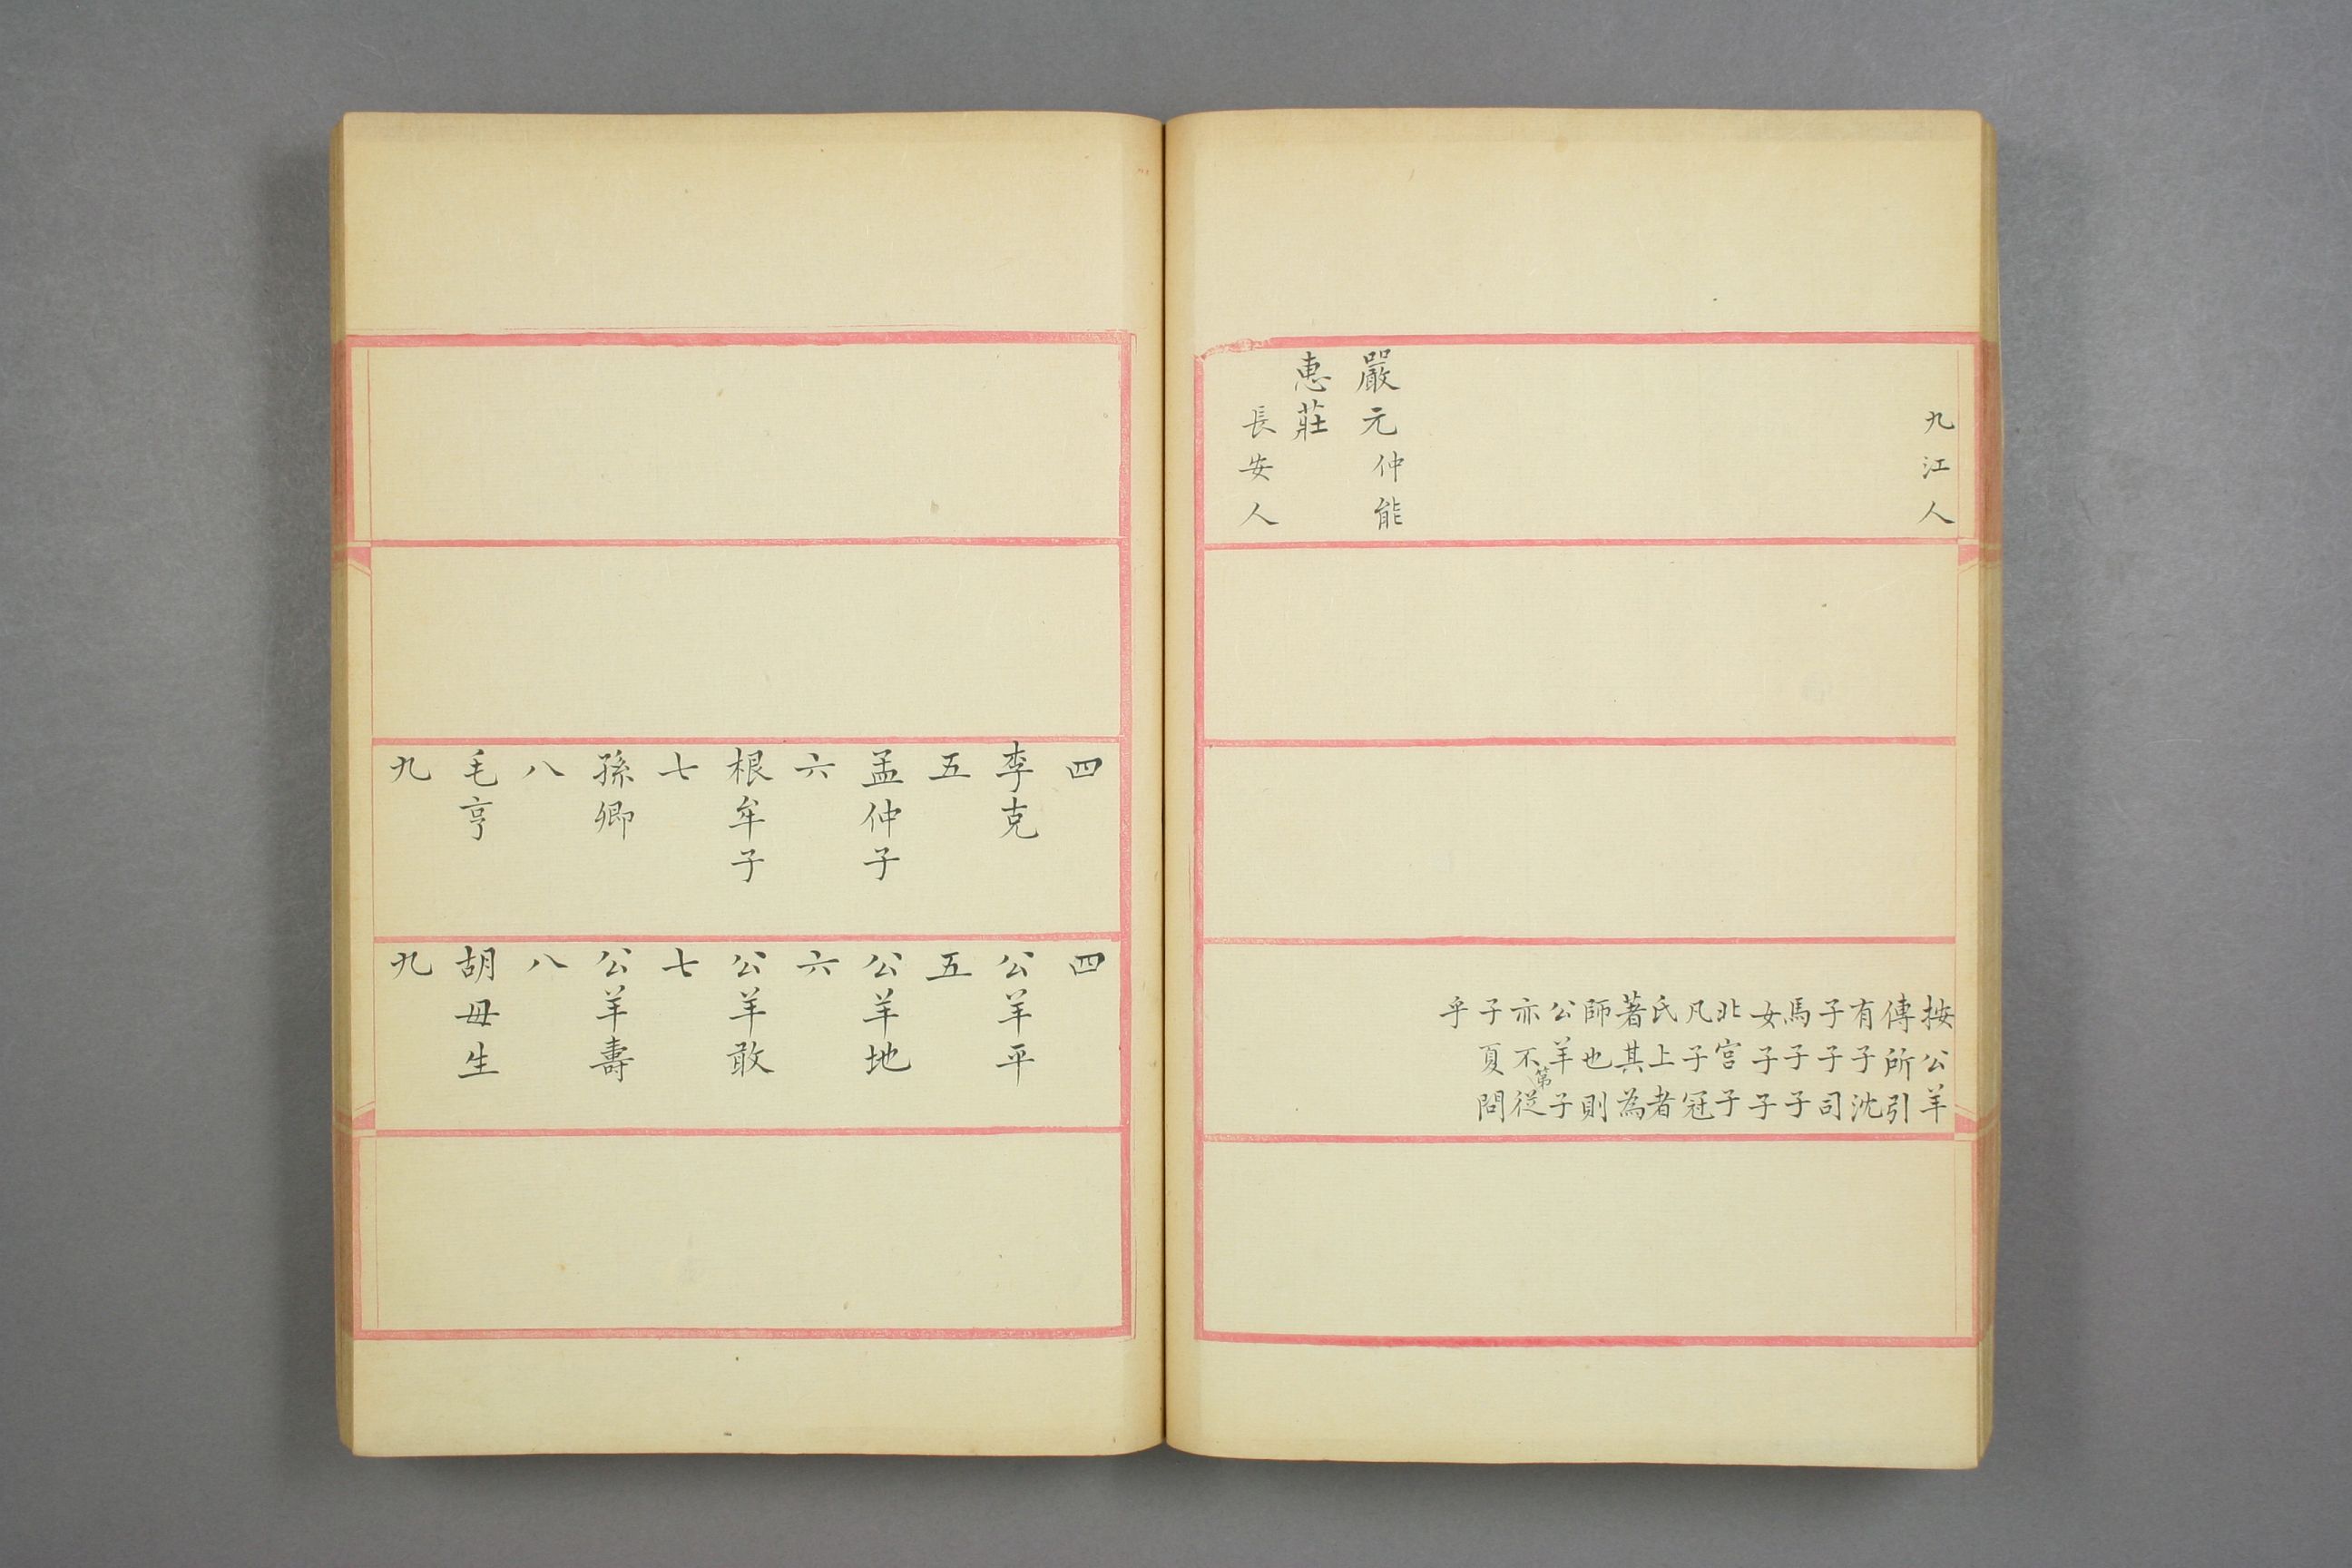 九江人
嚴元仲能
惠莊
長安人
按公羊
傳所引
有子沈
子子司
馬子子
女子子
北宮子
凡子冠
氏上者
著其為
師也則
公羊子
亦不第從
子夏問
乎
四
李克
五
孟仲子
六
根牟子
七
孫卿
八
毛亨
九
四
公羊平
五
公羊地
六
公羊敢
七
公羊壽
八
胡毋生
九